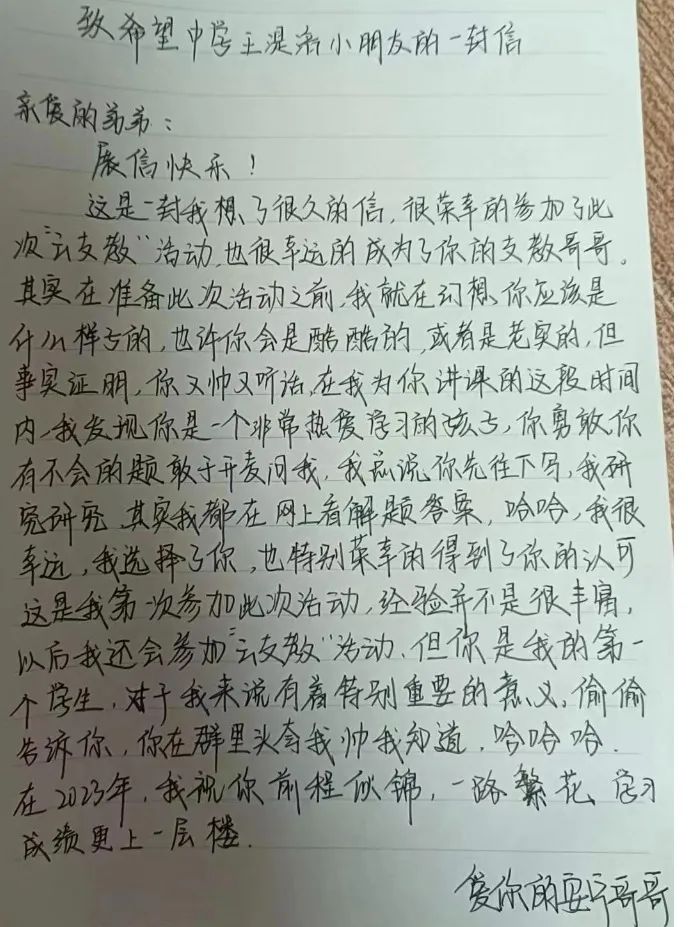 致希望中学王湜洺小朋友的一封信
亲爱的弟弟：
展信快乐！
这是一封我想了很久的信，很荣幸的参加了此
次“云支教”活动，也很幸运的成为了你的支教哥哥。
其实在准备此次活动之前，我就在幻想，你应该是
什么样子的，也许你会是酷酷的，或者是老实的，但
事实证明，你又帅又听话，在我为你讲课的这段时间
内，我发现你是一个非常热爱学习的孩子，你勇敢，你
有不会的题敢于开麦问我，我总说你先往下写，我研
究研究，其实我都在网上看解题答案，哈哈，我很
幸运，我选择了你，也特别荣幸的得到了你的认可
这是我第一次参加此次活动，经验并不是很丰富，
以后我还会参加“云支教”活动，但你是我的第一
个学生，对于我来说有着特别重要的意义，偷偷
告诉你，你在群里头夸我帅我知道，哈哈哈.
在2023年，我祝你前程似锦，一路繁花、学习
成绩更上一层楼.
爱你的哥哥